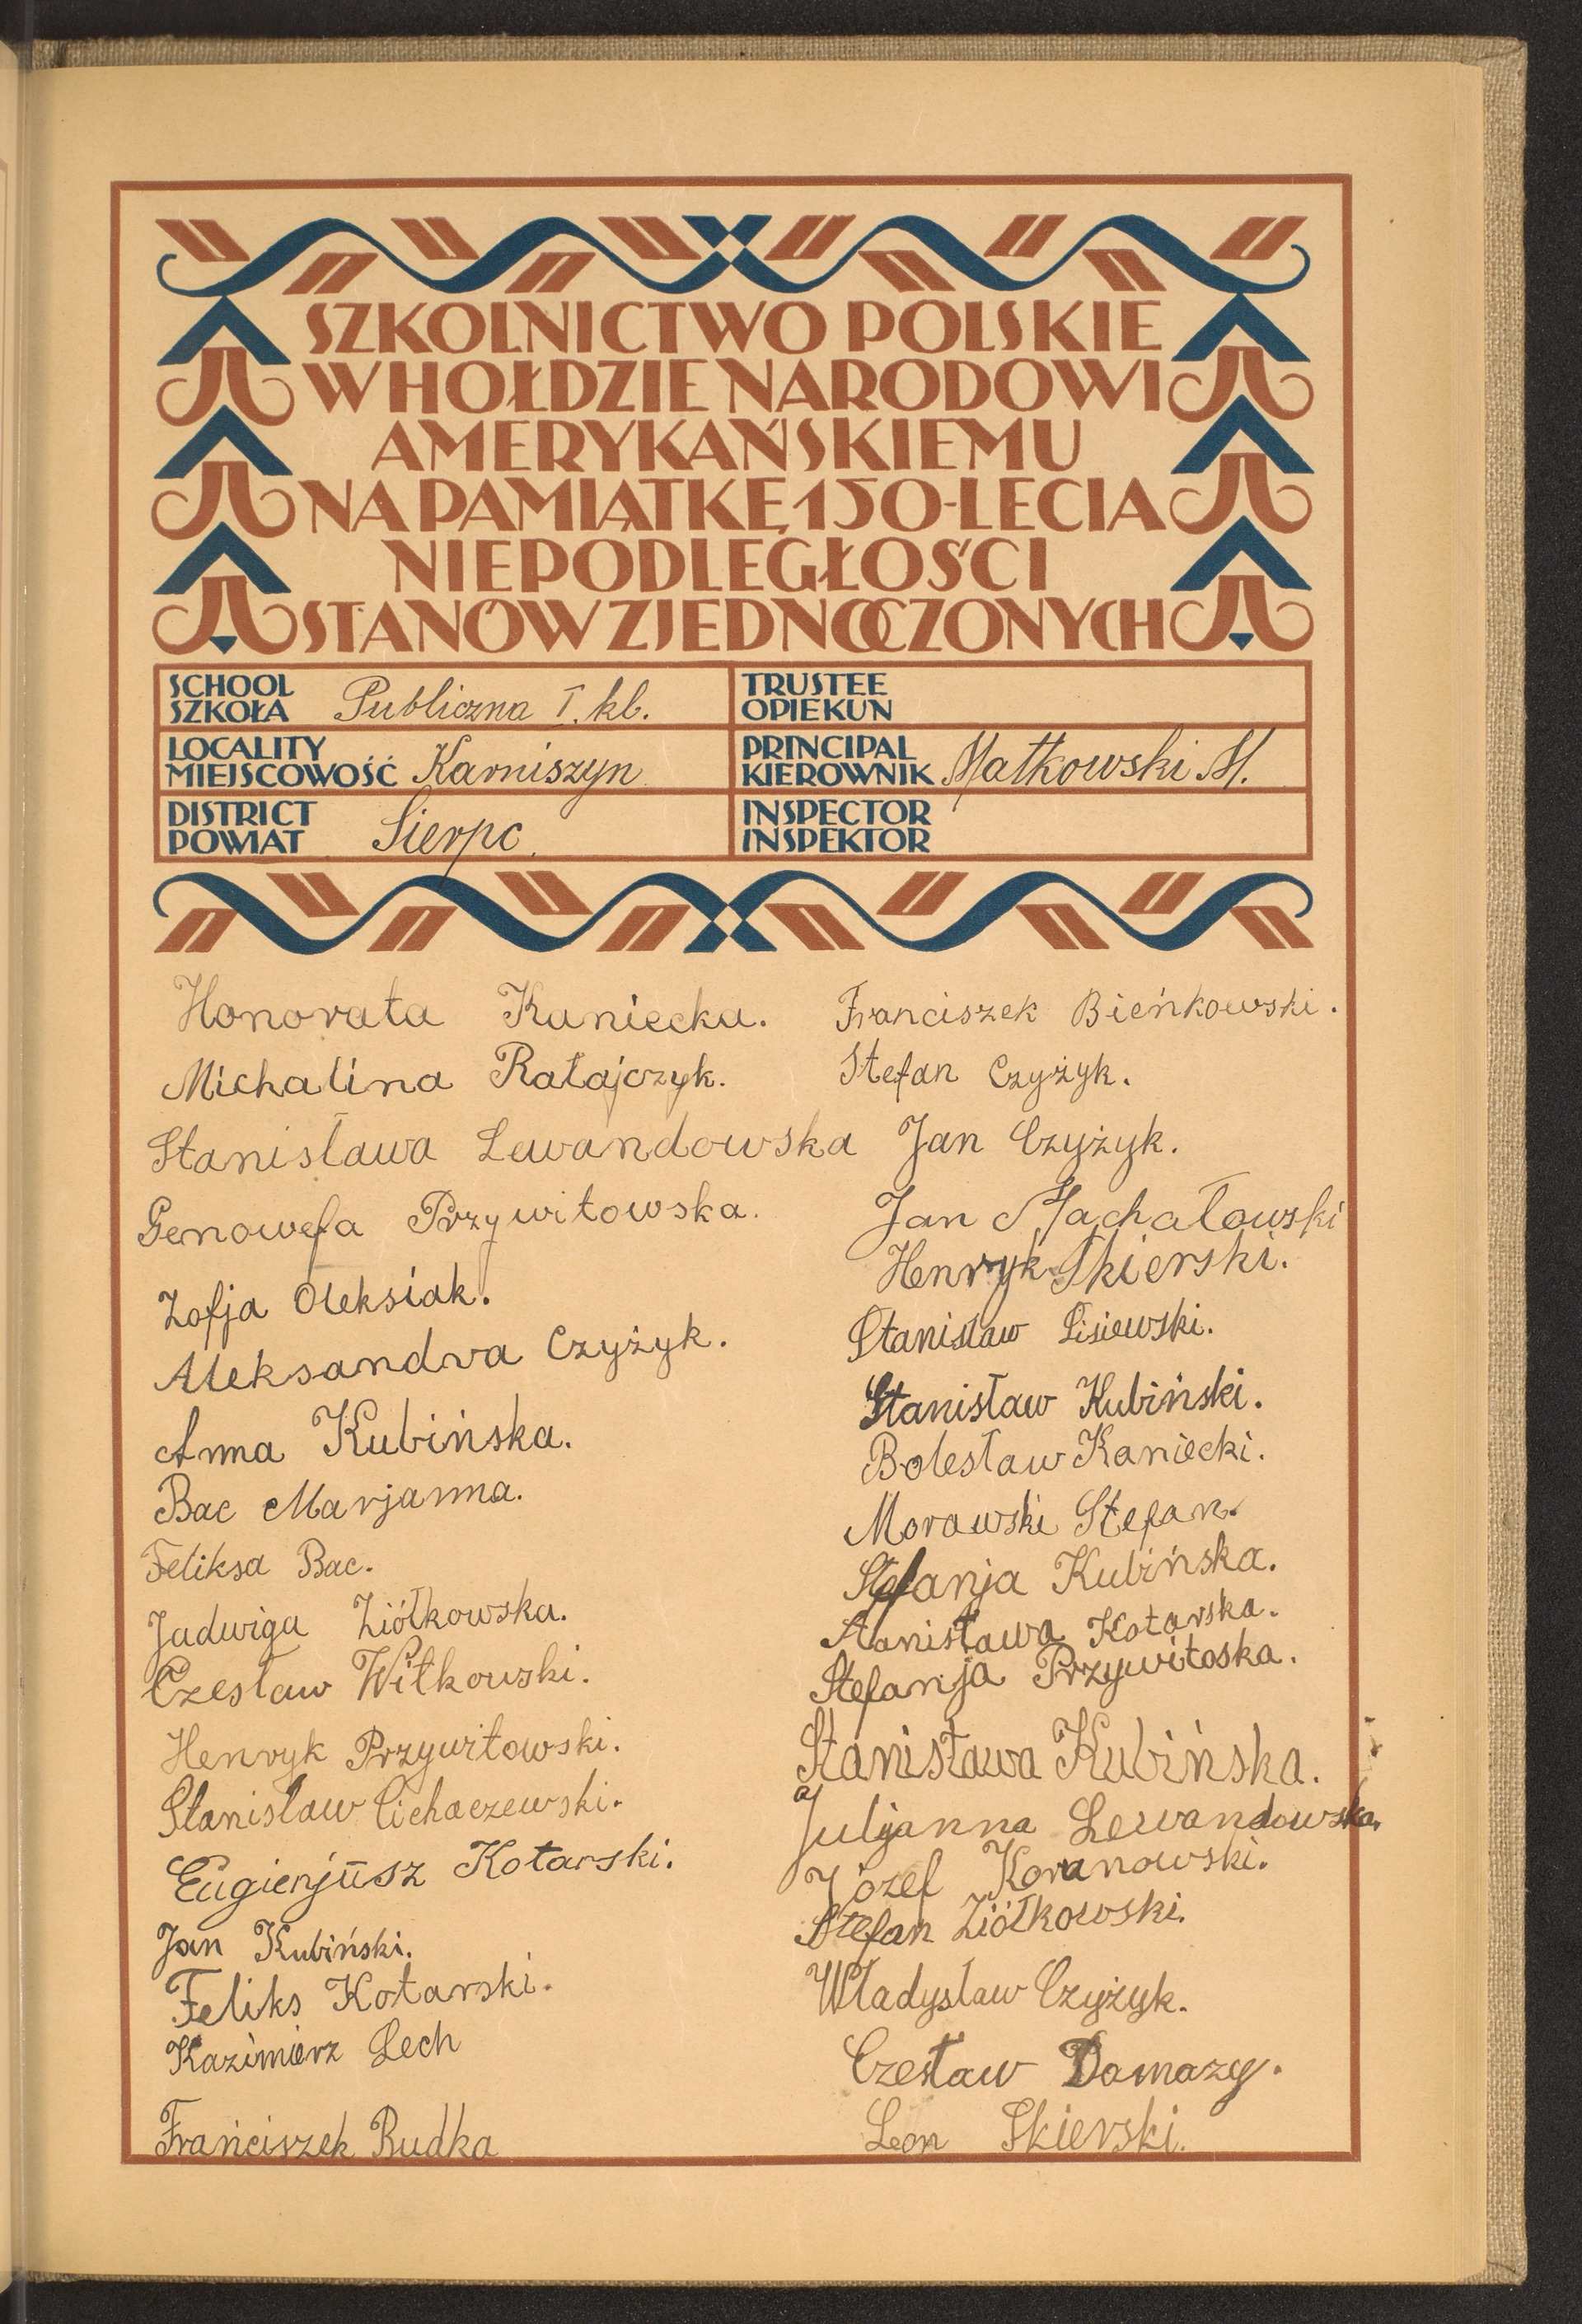 SZKOLNICTWO POLSKIE
W HOŁDZIE NARODOWI
AMERYKAŃSKIEMU
NA PAMIĄTKĘ 150-LECIA
NIEPODLEGŁOŚCI
STANÓW ZJEDNOCZONYCH
SCHOOL
SZKOŁA Publiczna I. kl.
TRUSTEE
OPIEKUN
LOCALITY
MIEJSCOWOŚĆ Karniszyn
PRINCIPAL
KIEROWNIK Małkowski M.
DISTRICT
POWIAT Sierpc.
INSPECTOR
INSPEKTOR
Honorata Kaniecka.
Michalina Ratajczyk.
Stanisława Lewandowska
Genowefa Przywitowska.
Zofja Oleksiak.
Aleksandra Czyżyk.
Anna Kubińska.
Bac Marjanna.
Feliksa Bac.
Jadwiga Ziółkowska.
Czesław Witkowski.
Henryk Przywitowski.
Stanisław Cichaczewski.
Eugienjusz Kotarski.
Jan Kubiński.
Feliks Kotarski.
Kazimierz Lech
Franciszek Rudka
Franciszek Bieńkowski.
Stefan Czyżyk.
Jan Czyżyk.
Jan Machałowski
Henryk Skierski.
Stanisław Lisiewski.
Stanisław Kubiński.
Bolesław Kaniecki.
Morawski Stefan.
Stefanja Kubińska.
Stanisława Kotarska.
Stefanja Przywitoska.
Stanisława Kubińska.
Juljanna Lewandowska.
Józef Koranowski.
Stefan Ziółkowski.
Władysław Czyżyk.
Czesław Domazy.
Leon Skierski.